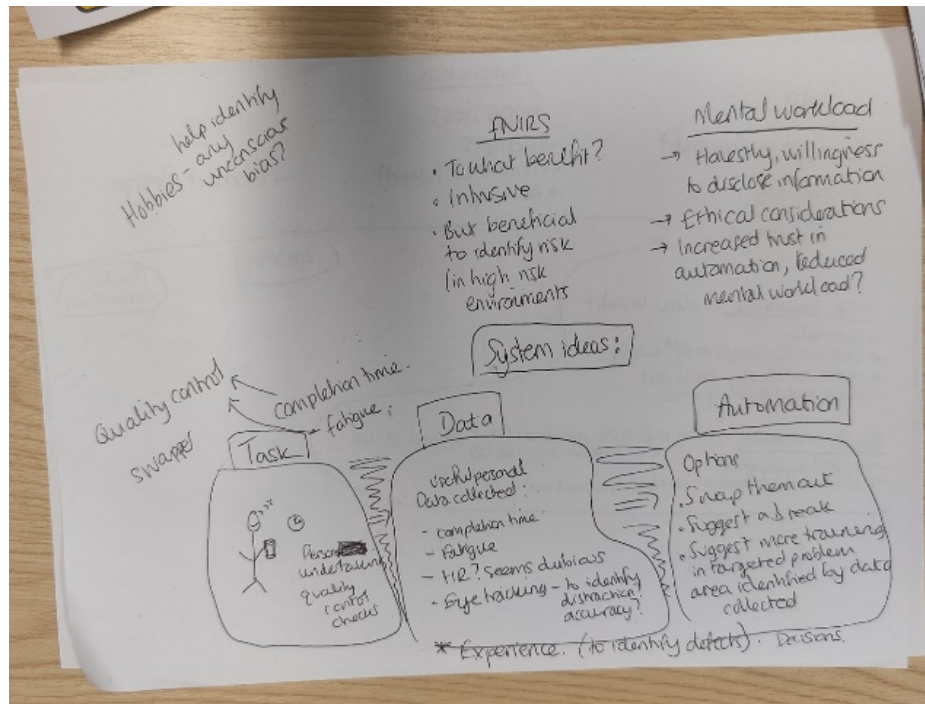 help identify
Hobbies - any
unconscious
bias?
fNIRS
• To what benefit?
• Intrusive
• But beneficial
to identify risk
(in high risk
environments
Mental workload
→ Honestly, willingness
to disclose information
→ Ethical considerations
→ Increased trust in
automation, reduced
mental workload?
System ideas:
Quality control
swapper
completion time.
fatigue;
Task
Person
undertaking
quality
control
checks
Data
Useful personal
Data collected:
- completion time
- Fatigue
- HR? Seems dubious
- Eye tracking - to identify
distraction?
accuracy?
* Experience. (to identify defects). Decisions.
Automation
Options
• Swap them out
• Suggest a break
• Suggest more training
in targeted problem
area identified by data
collected